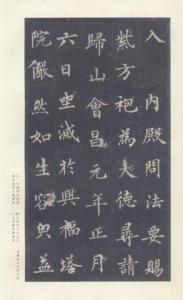 入内殿問法要賜
紫方袍為大德尋請
歸山會昌元年正月
六日坐滅於興福塔
院儼然如生容與益